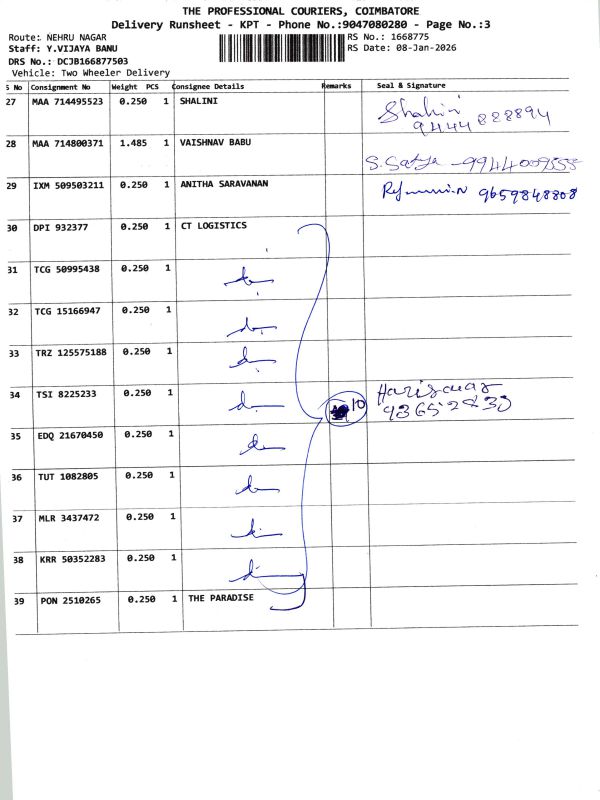 THE PROFESSIONAL COURIERS, COIMBATORE
Delivery Runsheet - KPT - Phone No.:9047080280 - Page No.:3
Route: NEHRU NAGAR
Staff: Y.VIJAYA BANU
DRS No.: DCJB166877503
Vehicle: Two Wheeler Delivery
RS No.: 1668775
RS Date: 08-Jan-2026
S No Consignment No Weight PCS Consignee Details Remarks Seal & Signature
27 MAA 714495523 0.250 1 SHALINI Shalini
9444 888894
28 MAA 714800371 1.485 1 VAISHNAV BABU
S. Satya - 9944009555
29 IXM 509503211 0.250 1 ANITHA SARAVANAN 9659848808
30 DPI 932377 0.250 1 CT LOGISTICS
31 TCG 50995438 0.250 1
32 TCG 15166947 0.250 1
33 TRZ 125575188 0.250 1
34 TSI 8225233 0.250 1 10
35 EDQ 21670450 0.250 1
36 TUT 1082805 0.250 1
37 MLR 3437472 0.250 1
38 KRR 50352283 0.250 1
39 PON 2510265 0.250 1 THE PARADISE